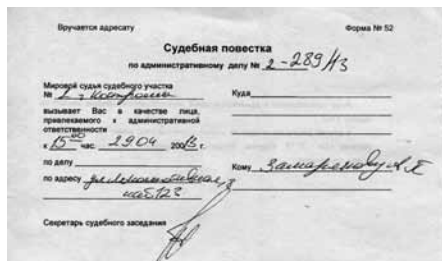 Вручается адресату
Форма № 52
Судебная повестка
по административному делу № 2-289/13
Мировой судья судебного участка
№ 2 г. Костромы
вызывает Вас в качестве лица,
привлекаемого к административной
ответственности
к 15 час. 29 04 20013 г.
по делу
по адресу ул Локомотивная, 3
каб 123
Секретарь судебного заседания
Куда
Кому